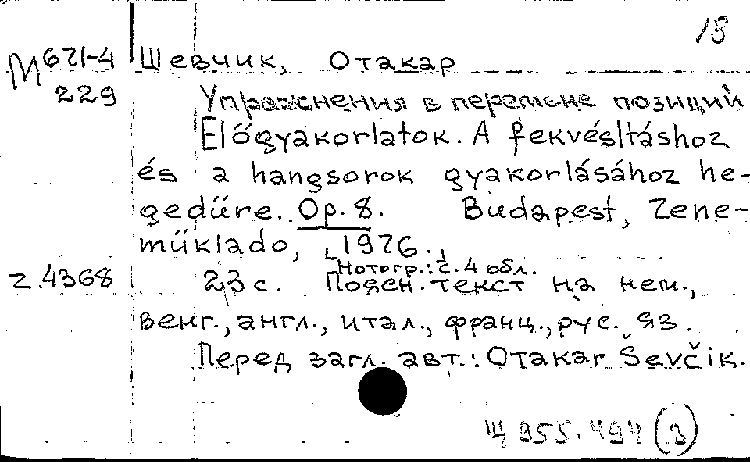 18
М 671-4 Шевчик, Отакар
229 Упражнения в перемене позиций
Előgyakorlatok. A fekvésltáshoz
és a hangsorok gyakorlásához he-
gedüre. Op. 8. Budapest, Zene-
müklado, [1976.,
Нотогр.: с. 4 обл.
Z.4368 23 с. Пояен. текст на нем.,
венг., англ., итал., франц., рус. яз.
Перед загл. авт.: Otakar Ševčik.
Щ 955.494 (3)